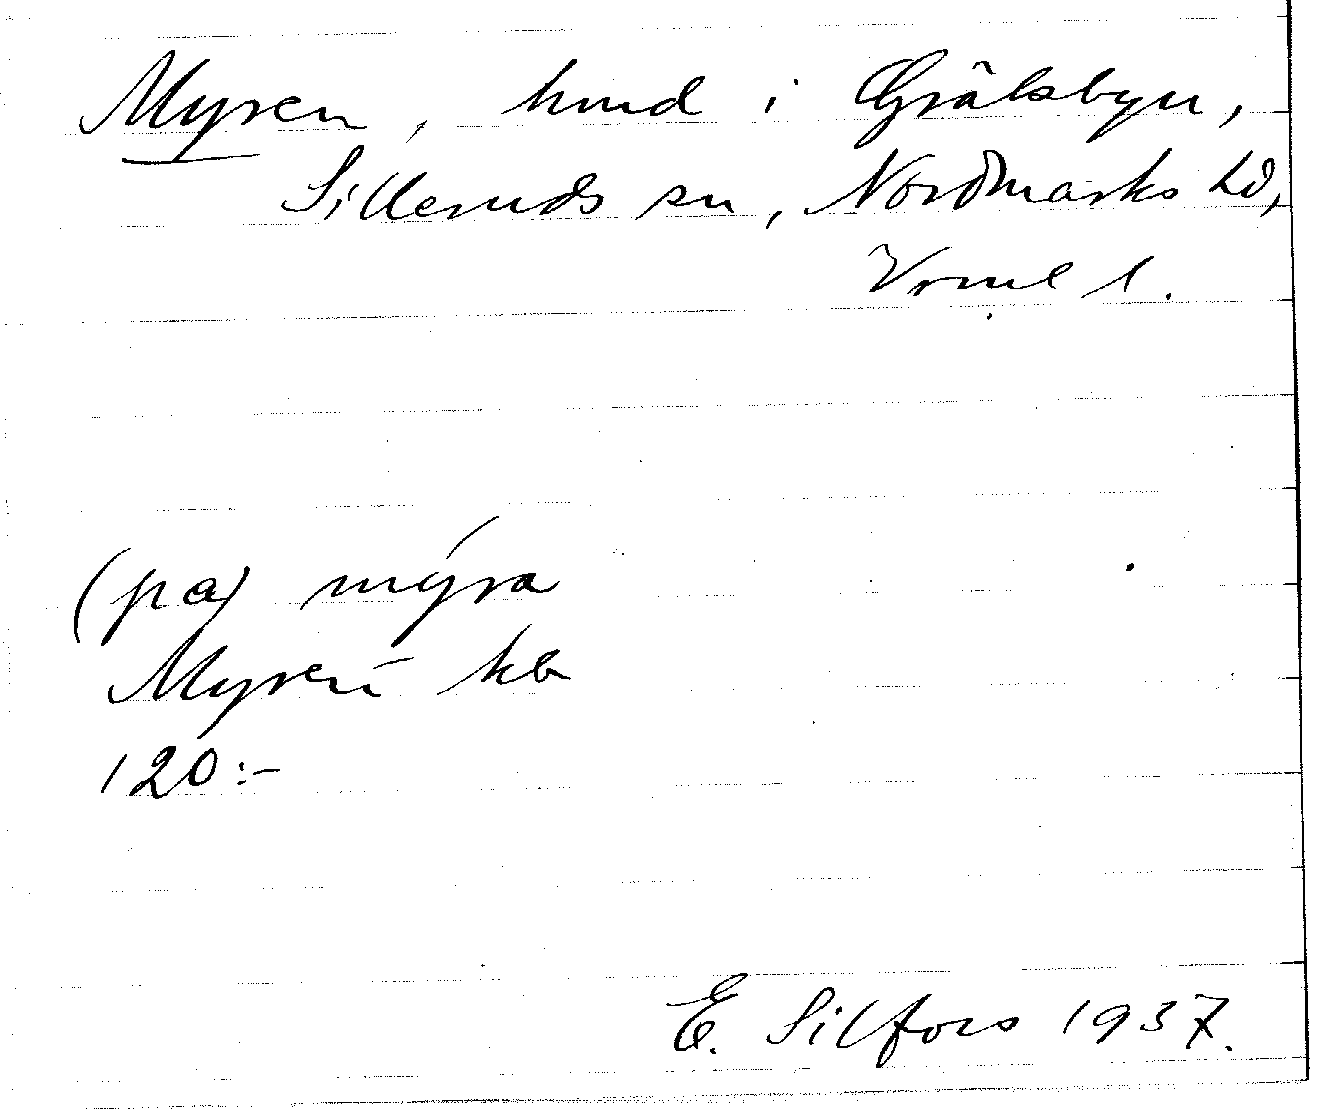 Myren, hmd i Gräsbyn,
Silleruds sn, Nordmarks hd,
Vrml l.
(pa) myra
Myren kb
120:-
E. Silfors 1937.